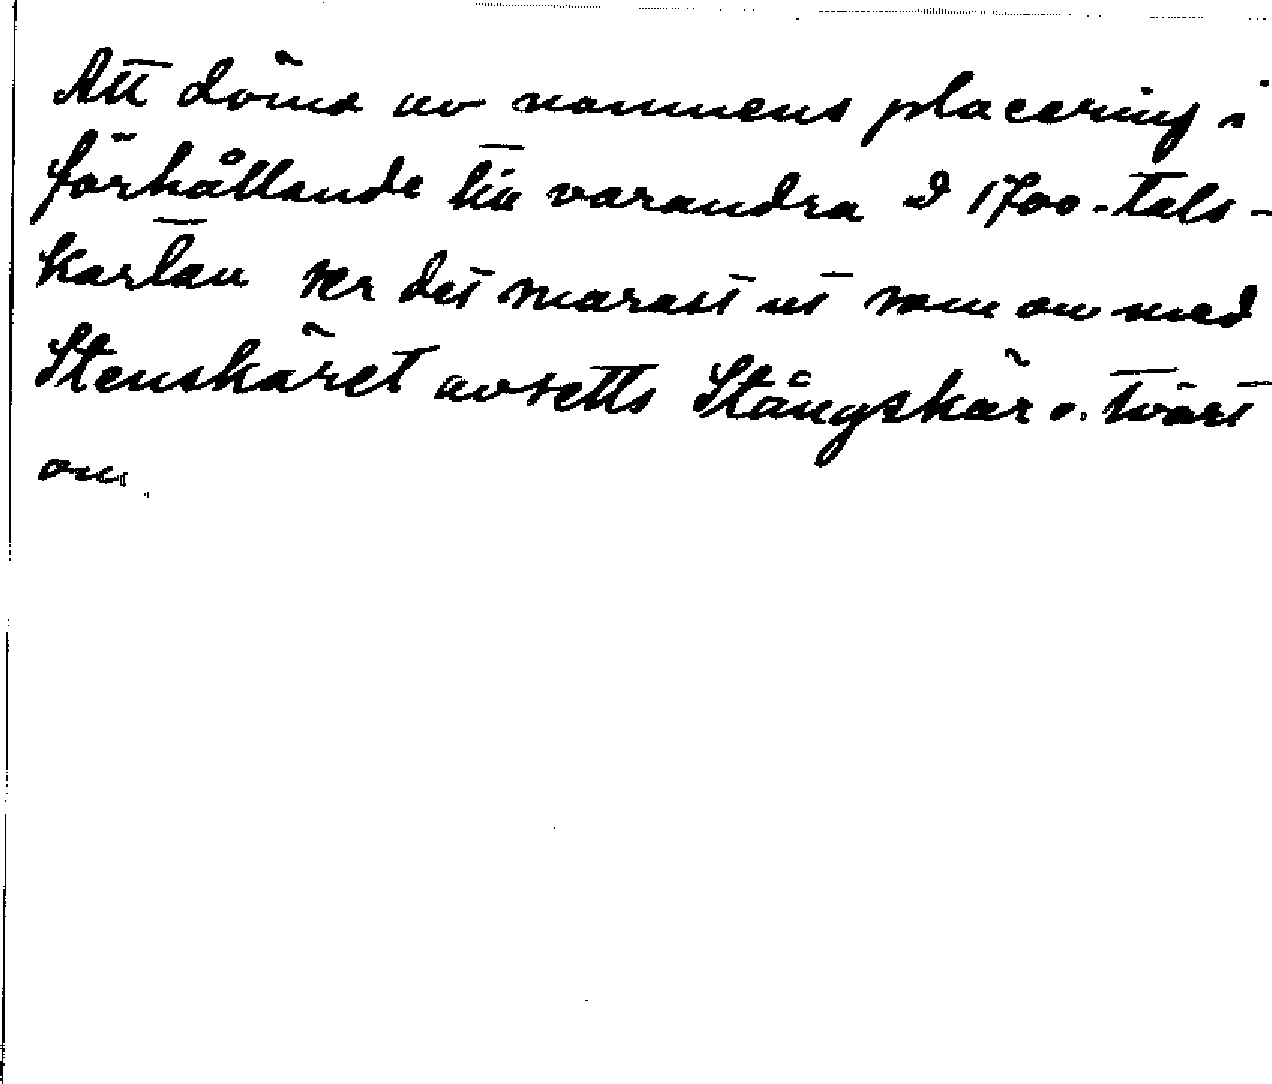 Att döma av namnens placering i
förhållande till varandra å 1700-tals-
kartan ser det snarast ut som om med
Stenskäret avsetts Stångskär o. tvärt
om.